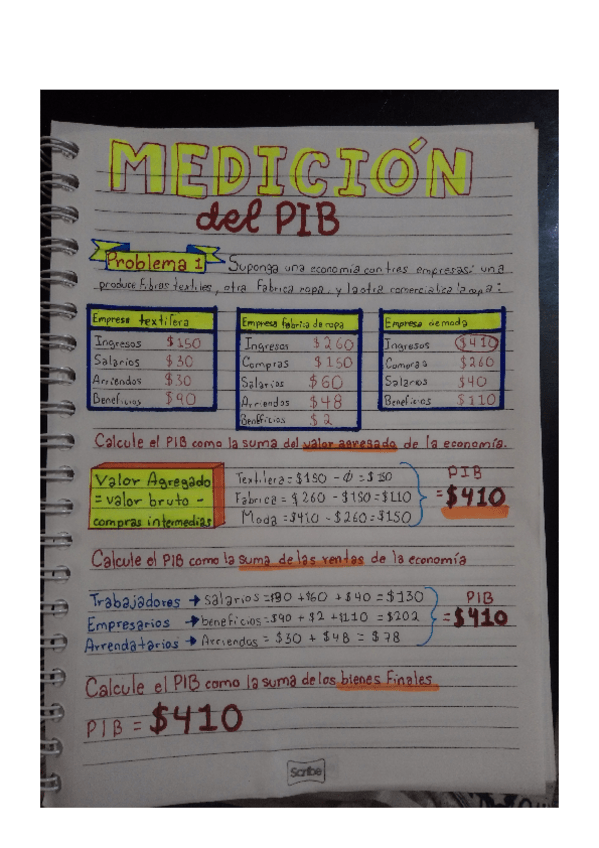 MEDICIÓN
del PIB
Problema 1 Suponga una economía con tres empresas: una
produce fibras textiles, otra fabrica ropa, y la otra comercializa la ropa:
Empresa textilera
Ingresos $150
Salarios $30
Arriendos $30
Beneficios $90
Empresa fabrica de ropa
Ingresos $260
Compras $150
Salarios $60
Arriendos $48
Beneficios $2
Empresa de moda
Ingresos $410
Compras $260
Salarios $40
Beneficios $110
Calcule el PIB como la suma del valor agregado de la economía.
Valor Agregado
= valor bruto -
compras intermedias
Textilera = $150 - ∅ =
Fabrica = $260 - $150 = $110
Moda = $410 - $260 = $150
PIB
= $410
Calcule el PIB como la suma de las ventas de la economía
Trabajadores → salarios = + $60 + $40 = $130
Empresarios → beneficios = $90 + $2 + 110 = $202
Arrendatarios → Arriendos = $30 + $48 = $78
PIB
= $410
Calcule el PIB como la suma de los bienes finales
PIB = $410
Scribe